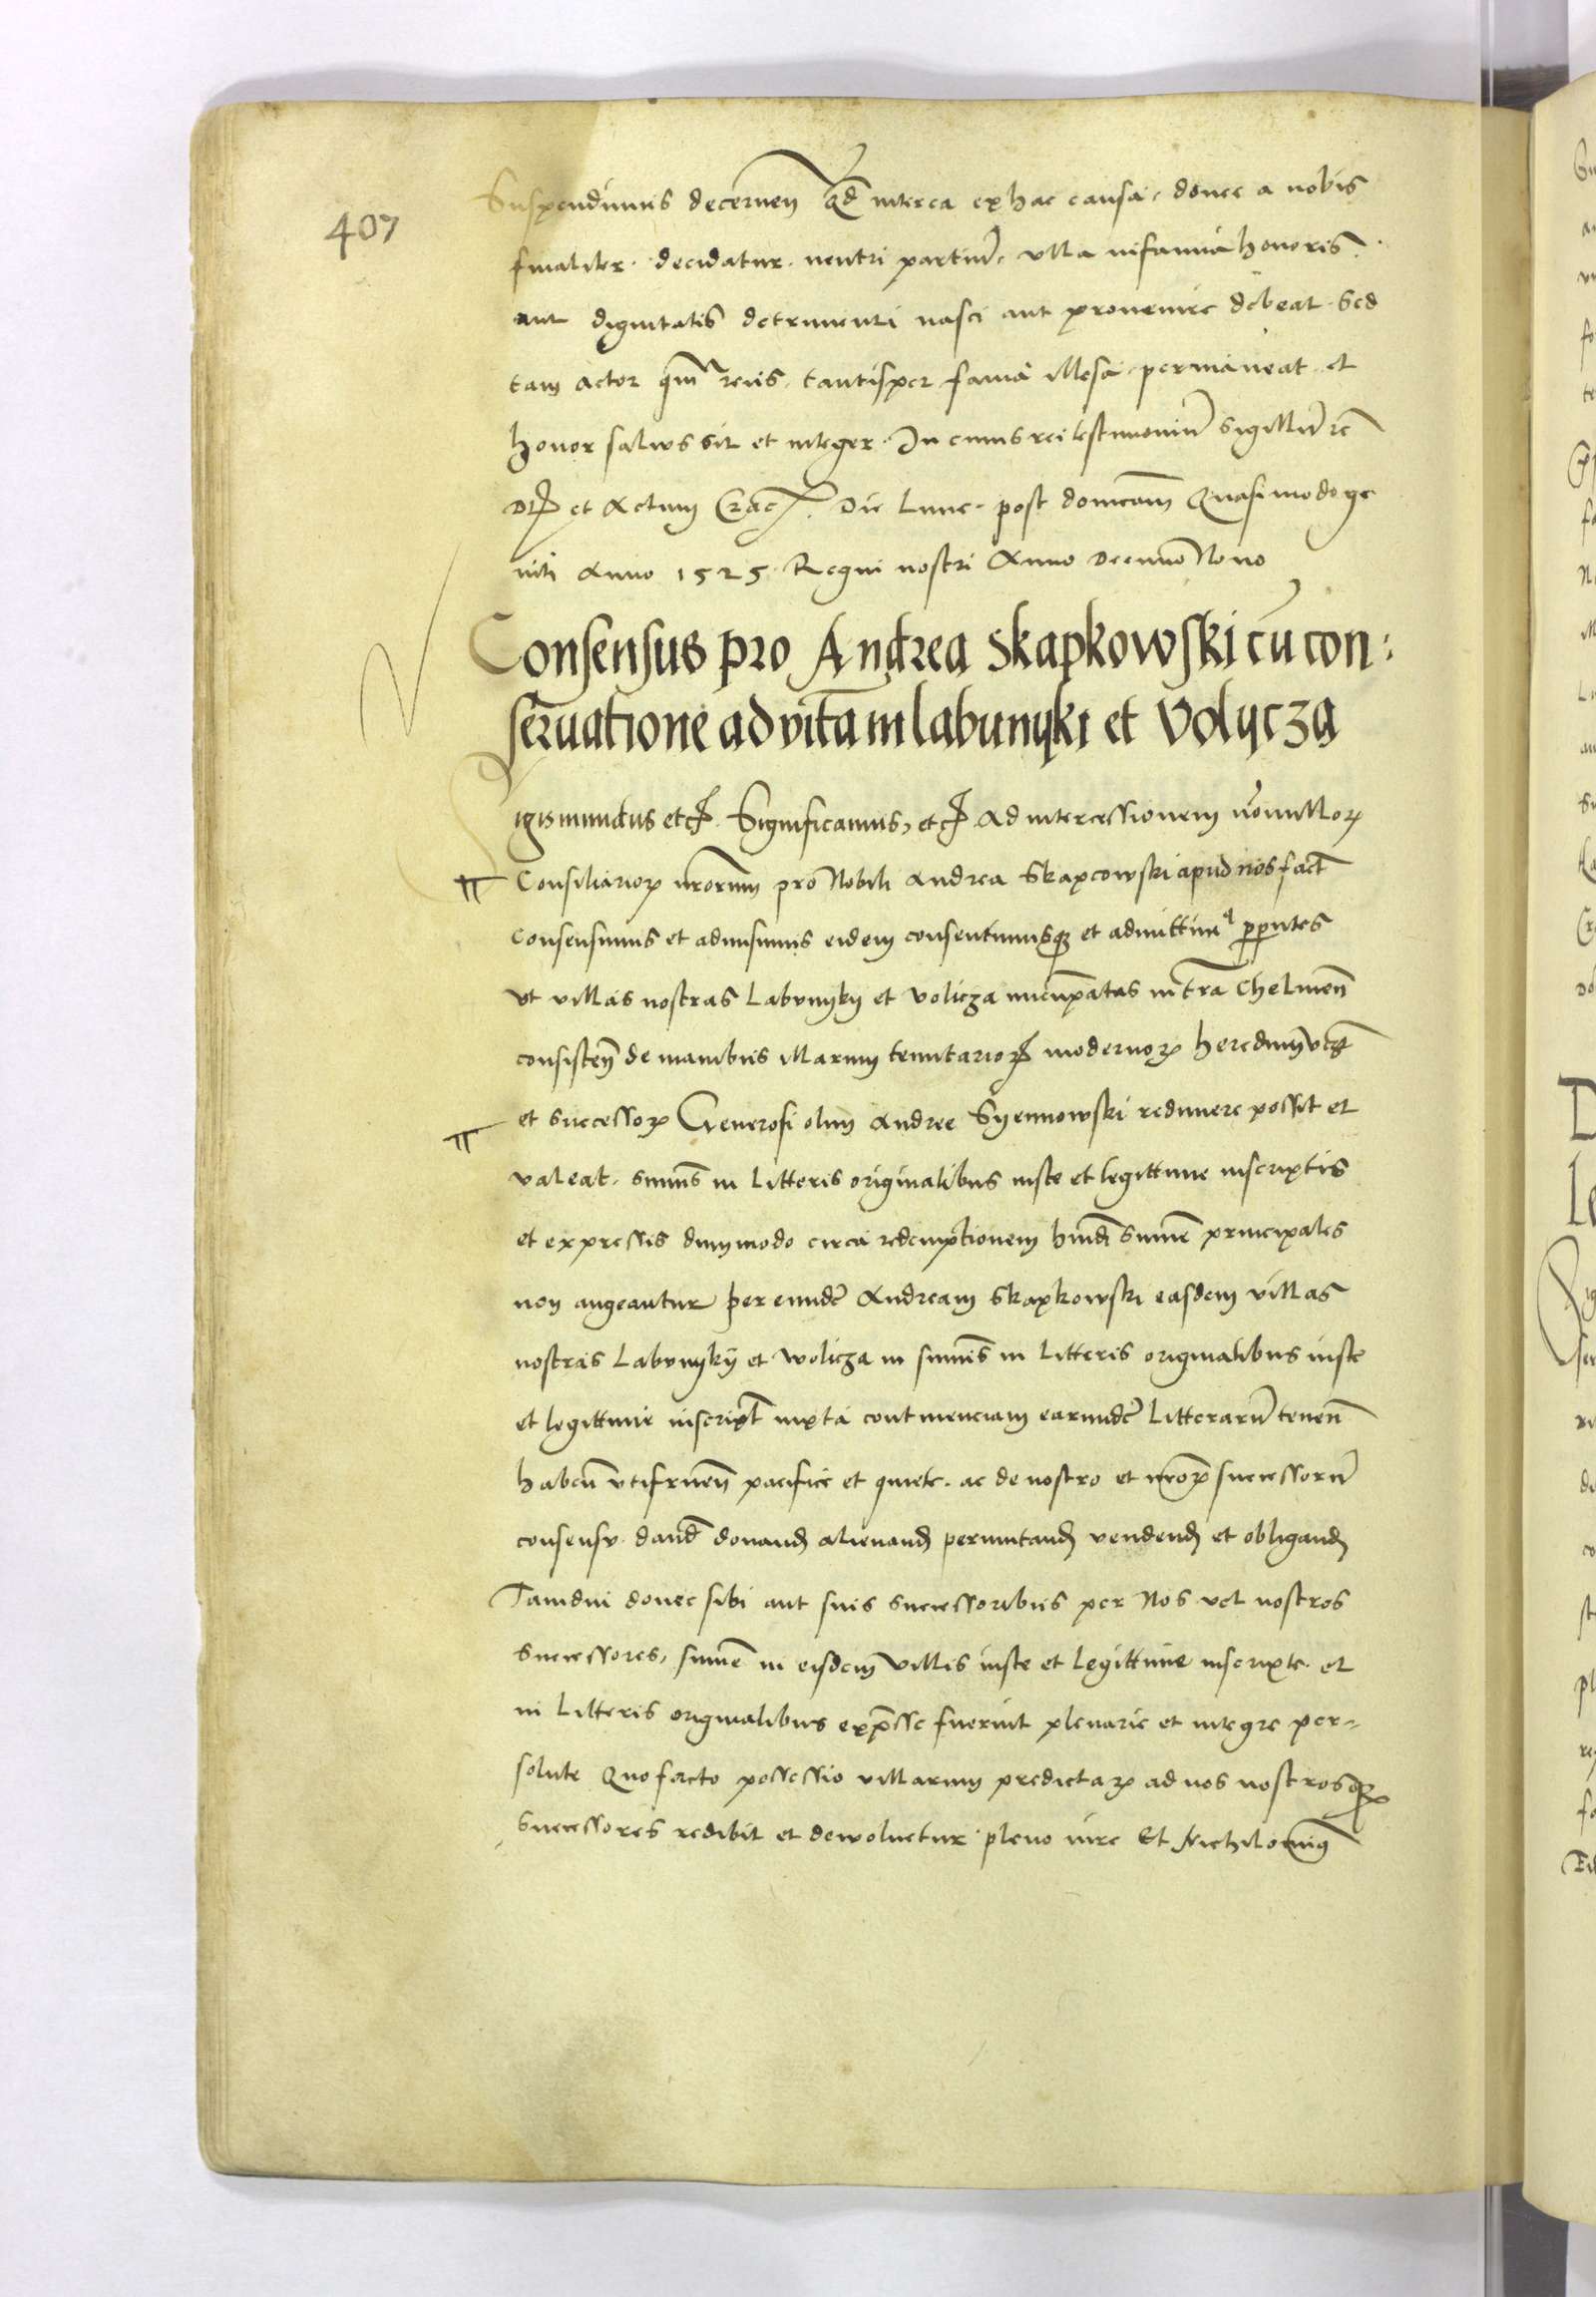 407
Suspendimus decernen̄ qđ interea ex hac causa, donec a nobis
finaliter decidatur neutri partiū, ulla infamia honoris
aut dignitatis detrimenti nasci aut provenire debeat. Sed
tam actor qm̄ reus, tantisper fama illesa permaneat et
honor salws sit et integer. In cuius rei testimoniū sigillū etc
Dat et Actum Crac. Die Lune post domcam Quasimodoge
niti Anno 1525 Regni nostri Anno Decimo Nono
Consensus pro Andrea Skapkowski cū con:
servatione ad vitam in labunyki et Volycza
Sigismundus etc. Significamus, etc. Ad intercessionem nōnullorꝝ
Consiliariorꝝ nrorum pro Nobili Andrea Skapcowski apud nos fact̄
Consensimus et admisimus eidem consentimusqꝫ et admittim⁹ pp̄ntes
Ut villas nostras Labvnyky et Volicza nucupatas in t̄ra Chelmen̄
consisten̄ de manibus illarum tenutariorꝝ modernorꝝ heredum
et successorꝝ Generosi olim Andree Syennowski redimere possit et
valeat. sum̄s in Litteris originalibus iuste et legittime inscriptis
et expressis dummodo circa redemptionem hm̄di sum̄e principales
non augeantur per eundē Andream Skapkowski easdem villas
nostras Labvnykÿ et Wolicza in sum̄s in Litteris originalibus iuste
et legittime inscript̄ iuxta continenciam earundē Litterarū tenen̄
haben̄ utifruen̄ pacifice et quiete. ac de nostro et nrorꝝ successorū
consensv dand̄ donand̄ alienand̄ permutand̄ vendend̄ et obligand̄
Tamdiu donec sibi aut suis successoribus per Nos vel nostros
successores, sum̄e in eisdem Villis iuste et legittime inscripte et
in Litteris originalibus exp̄sse fuerint plenarie et integre per-
solute Quo facto possessio villarum predictarꝝ ad nos nostrosqꝫ
successores redibit et dewoluetur pleno iure Et Nichilomin⁹